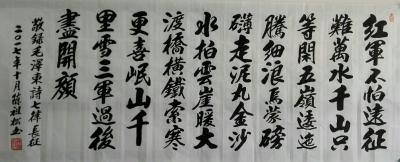 紅軍不怕遠征
難萬水千山只
等閑五嶺逶迤
騰細浪烏蒙磅
礴走泥丸金沙
水拍雲崖暖大
渡橋橫鐵索寒
更喜岷山千
里雪三軍過後
盡開顏
敬錄毛澤東詩七律長征
二〇一七年十月祖松書